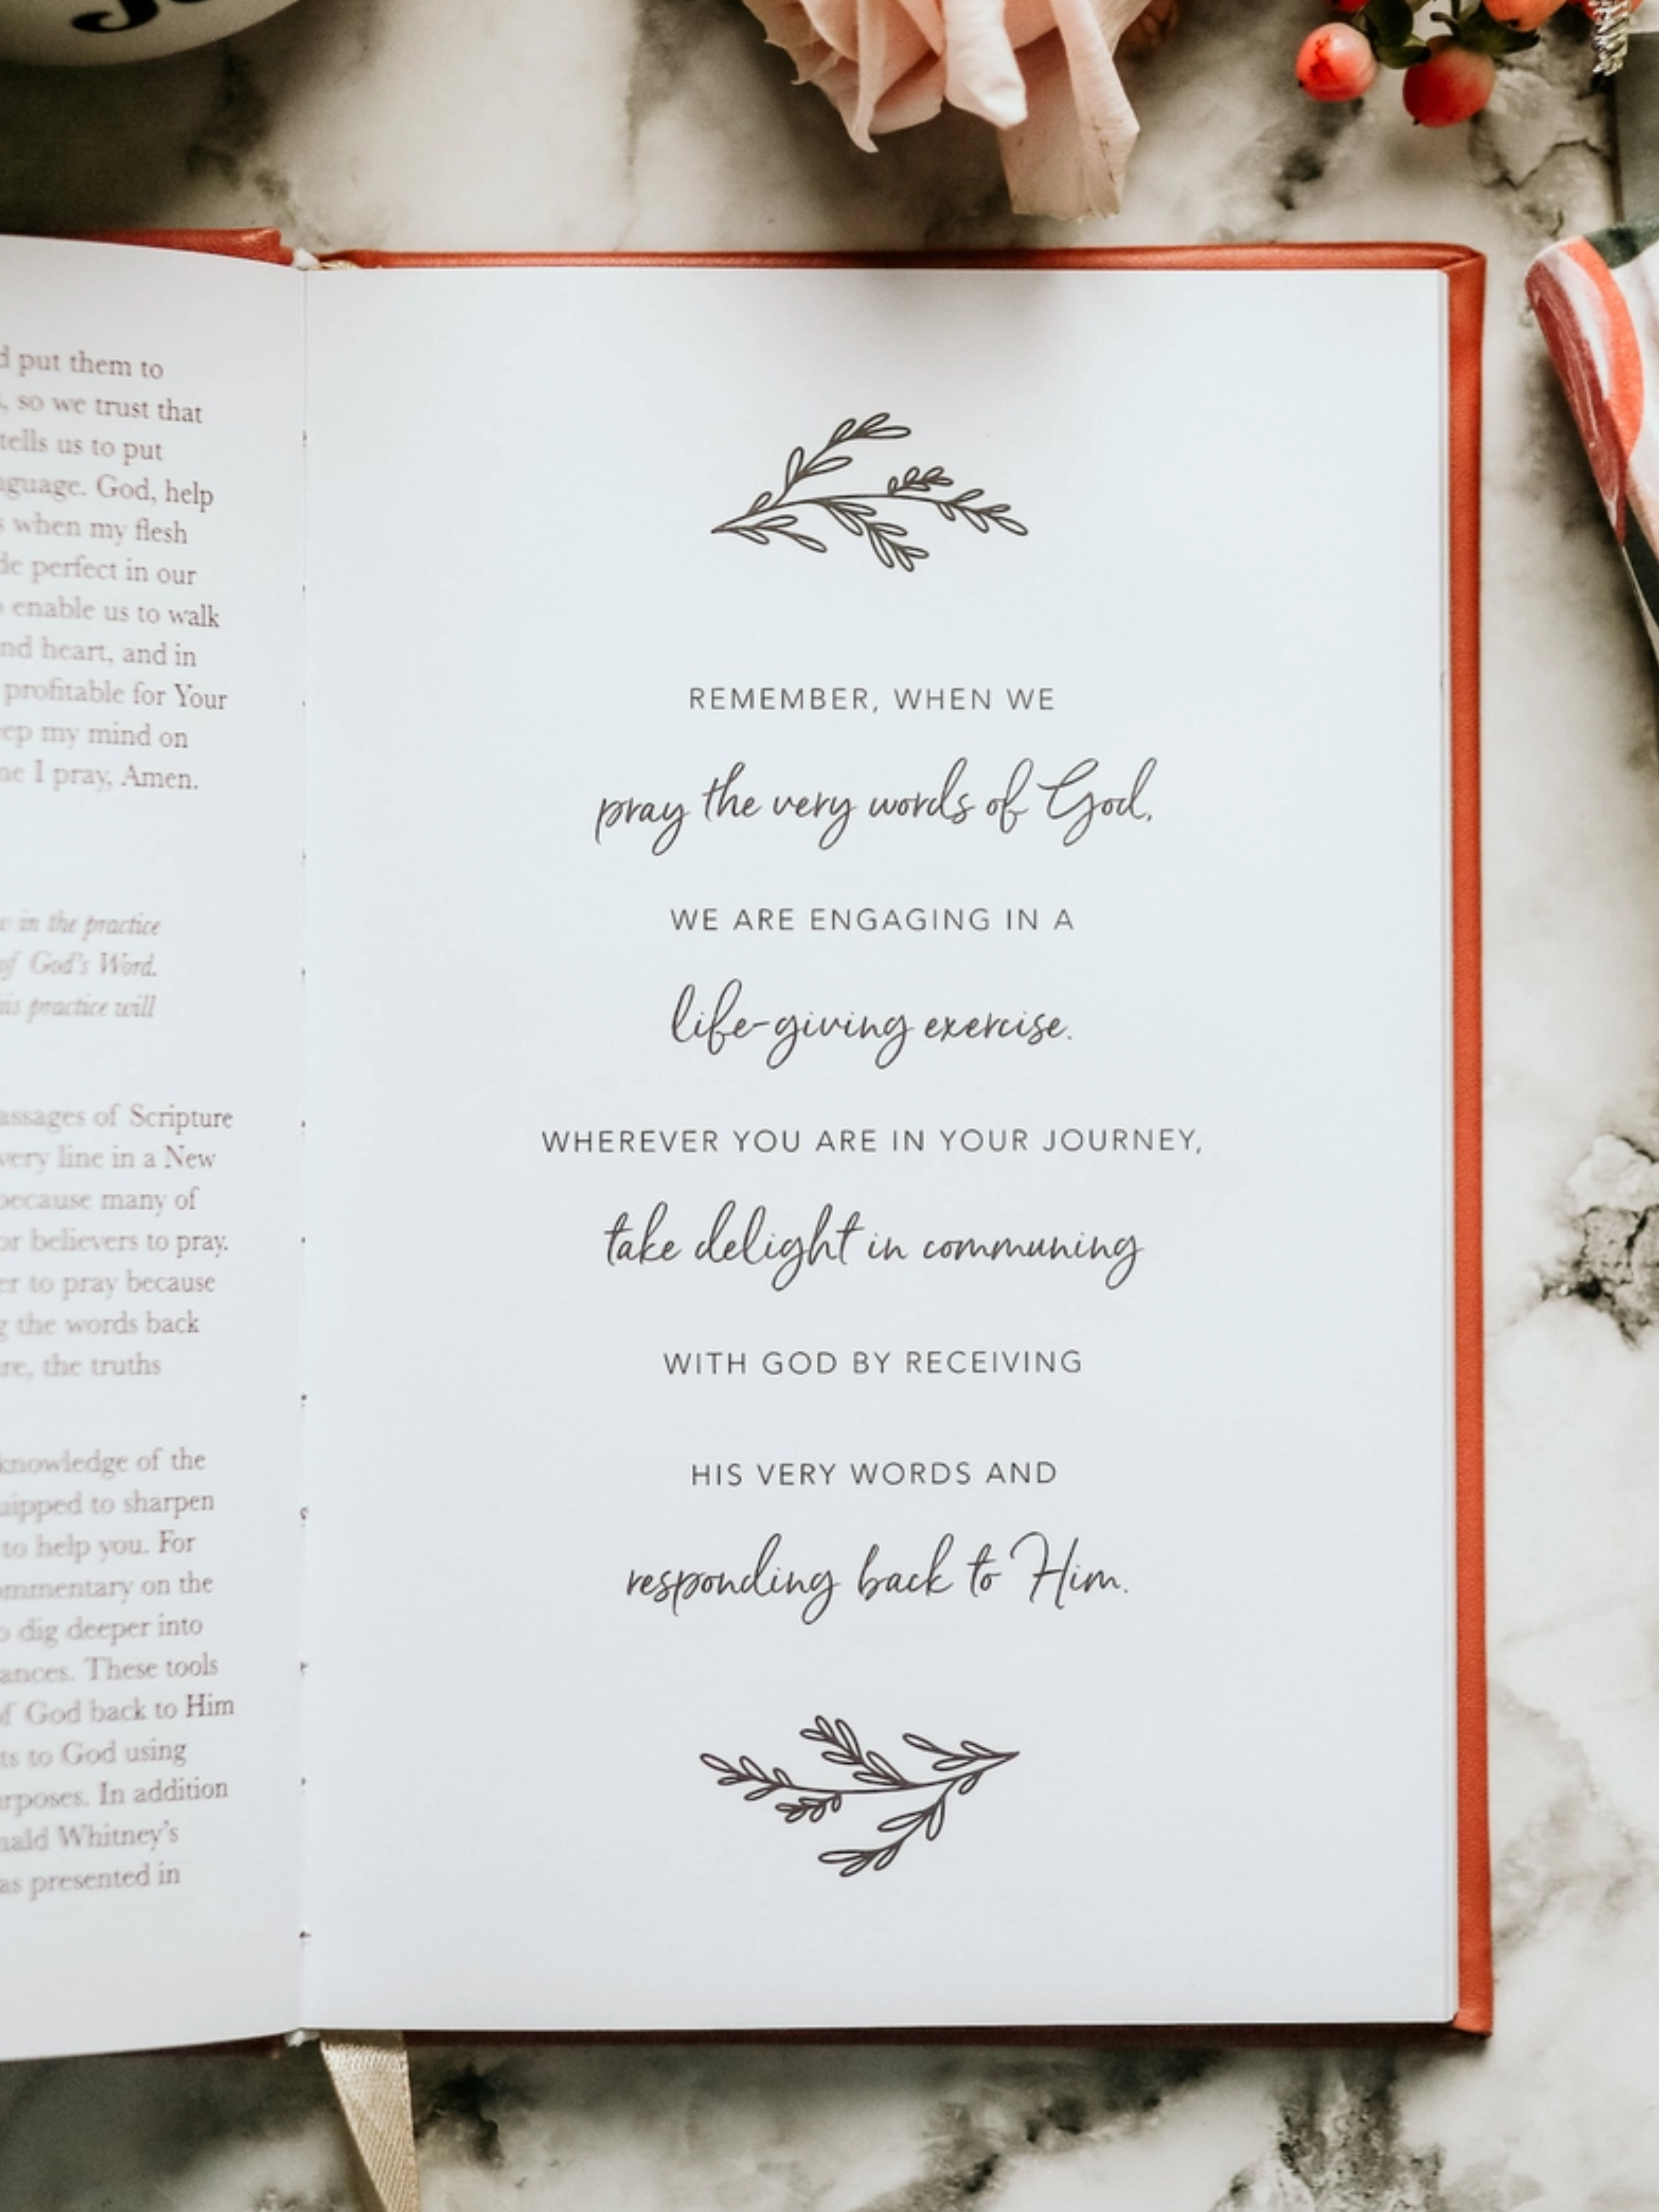 put them to
so we trust that
tells us to put
God, help
when my flesh
perfect in our
enable us to walk
heart, and in
profitable for Your
my mind on
I pray, Amen.
in the practice
of God's Word.
practice will
of Scripture
line in a New
because many of
believers to pray.
to pray because
the words back
the truths
knowledge of the
to sharpen
to help you. For
on the
dig deeper into
These tools
of God back to Him
to God using
In addition
Whitney's
as presented in
REMEMBER, WHEN WE
pray the very words of God,
WE ARE ENGAGING IN A
life-giving exercise.
WHEREVER YOU ARE IN YOUR JOURNEY,
take delight in communing
WITH GOD BY RECEIVING
HIS VERY WORDS AND
responding back to Him.